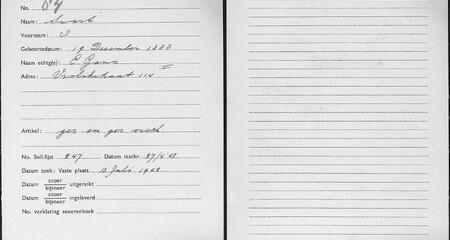 No. 84
Naam: Swart
Voornaam: S.
Geboortedatum: 19 December 1888
Naam echtg(e): E Gans
Adres: Vrolikstraat 114 III
Artikel: ger. en ger visch
No. Soll.lijst 247 Datum inschr. 27/4 42
Datum toek: Vaste plaats 18 Juli 1942
Datum snoer / bijsnoer uitgereikt
Datum snoer / bijsnoer ingeleverd
No. verklaring snoerenboek